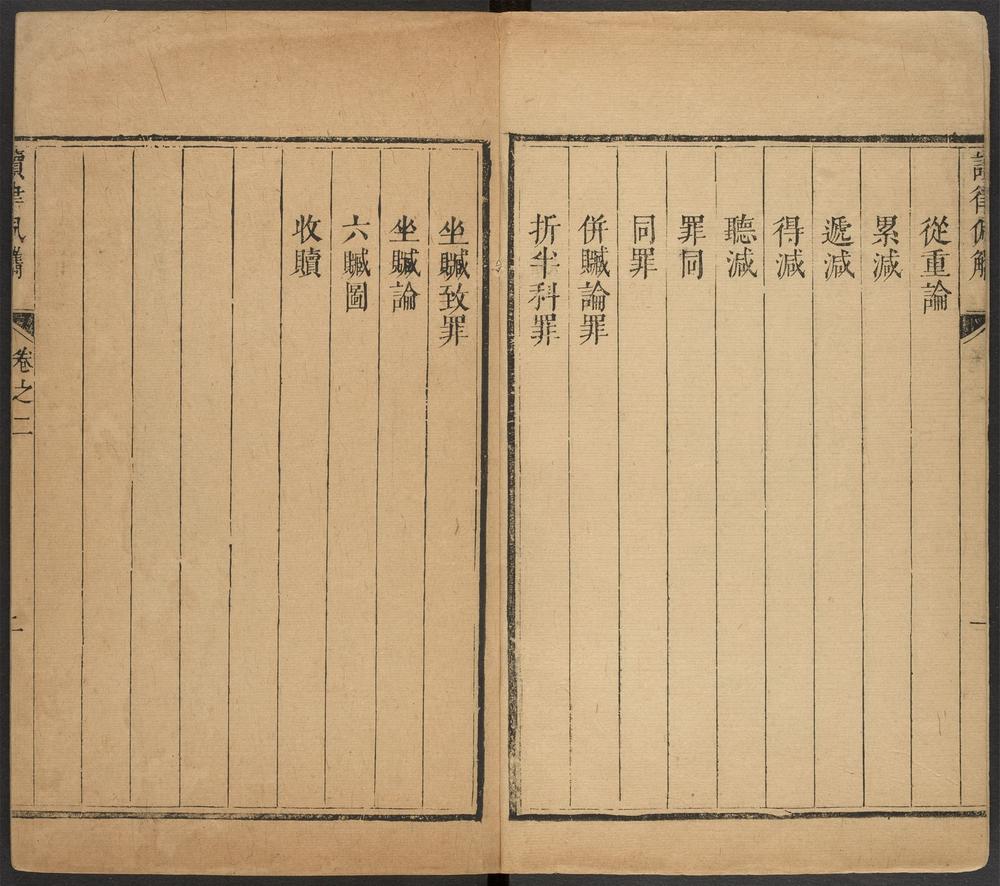 從重論
累減
遞減
得減
聽減
罪同
同罪
併贓論罪
折半科罪
一
坐贓致罪
坐贓論
六贓圖
收贖
卷之二
二